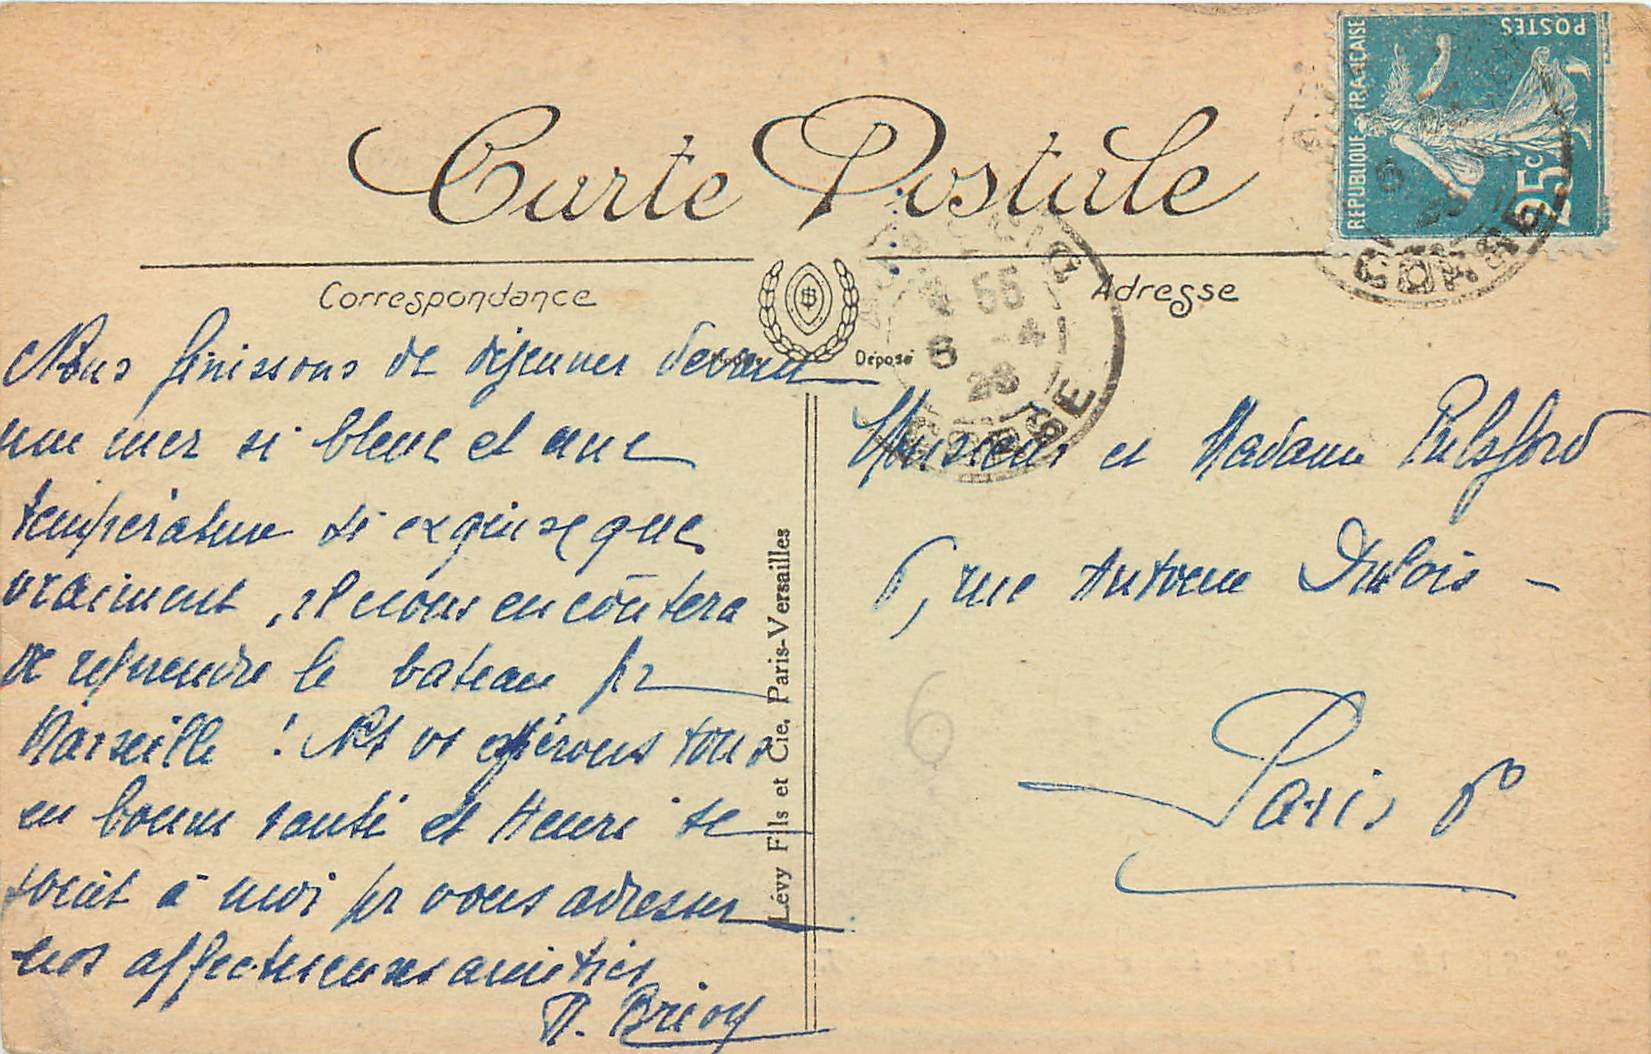 Carte Postale
Correspondance
Adresse
Modèle Déposé
REPUBLIQUE FRANÇAISE
POSTES
25c
55
6 -4
26
CORSE
CORSE
Nous finissons de déjeuner devant
une mer si bleue et une
température si exquise que
vraiment, il nous en coûtera
de reprendre le bateau pr
Marseille ! Ns vs espérons tous
en bonne santé et Henri se
joint à moi pr vous adresser
nos affectueuses amitiés
Brioy
Monsieur et Madame Pulsford
6, rue Antoine Dubois -
Paris 6e
6
Lévy Fils et Cie, Paris-Versailles